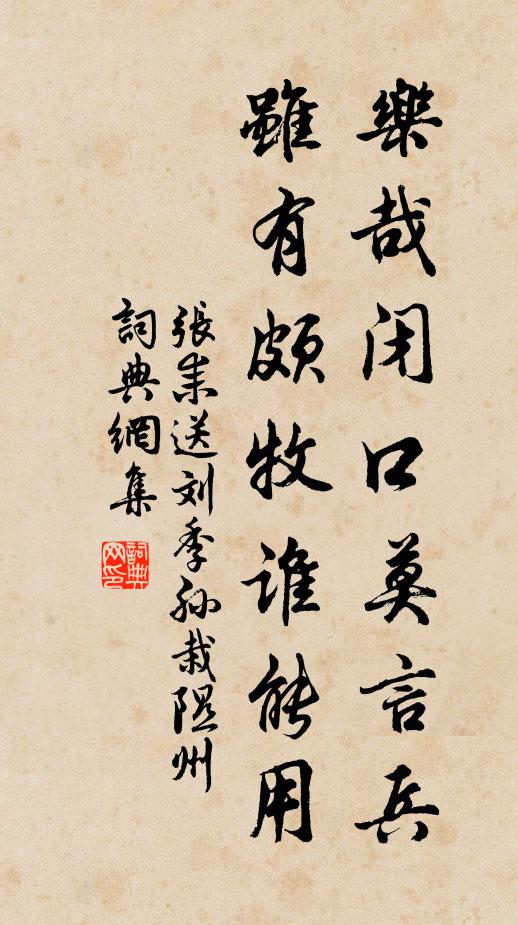 樂哉闭口莫言兵
雖有頗牧誰能用
張耒送刘季孙栽隰州
詞典網集
詞典网印